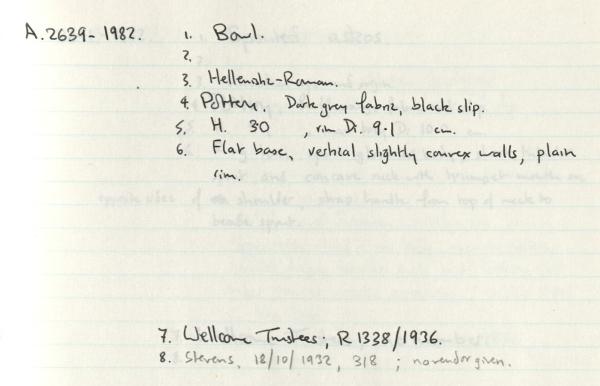 A.2639-1982. 1. Bowl.
2.
3. Hellenistic-Roman.
4. Pottery. Dark grey fabric, black slip.
5. H. 30 , rim Di. 9.1 cm.
6. Flat base, vertical slightly convex walls, plain
rim.
7. Wellcome Trustees; R 1338/1936.
8. Stevens, 18/10/1932, 318 ; no vendor given.